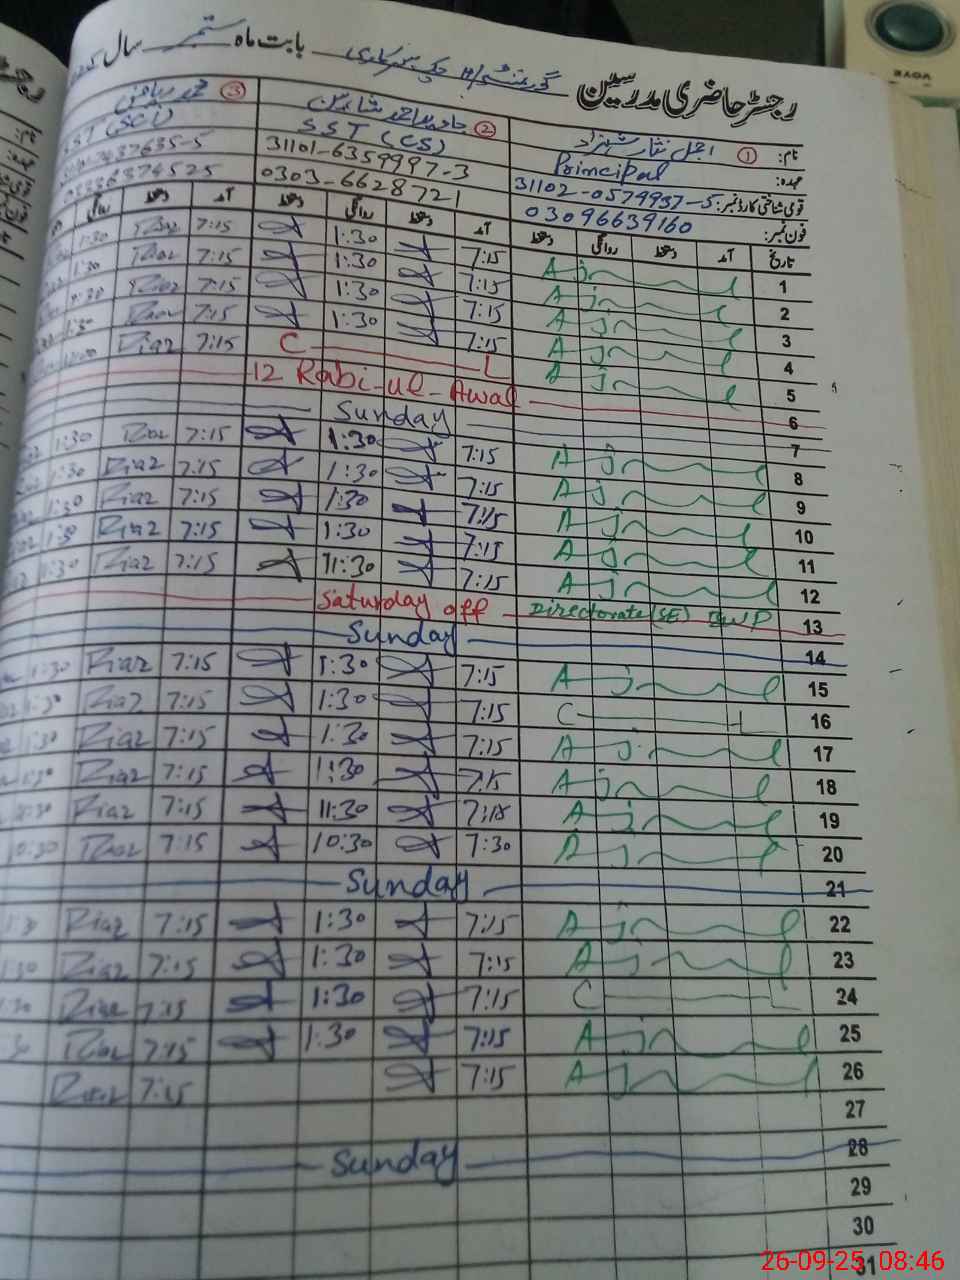 رجسٹر حاضری مدرسین گورنمنٹ بابت ماہ ستمبر سال
نام: ① اجمل نثار شہزاد
② شاہین
③ محمد ریاض
عہدہ: Principal
SST (CS)
SST (SCI)
قومی شناختی کارڈ نمبر: 31102-0579937-5
31101-6359997-3
فون نمبر: 03096639160
0303-6628721
03336374525
تاریخ آمد دستخط روانگی دستخط آمد دستخط روانگی دستخط آمد دستخط روانگی
1 A j l 7:15 1:30 7:15 Riaz 1:30
2 A j l 7:15 1:30 7:15 Riaz 1:30
3 A j l 7:15 1:30 7:15 Riaz 1:30
4 A j l 7:15 1:30 7:15 Riaz 1:30
5 A j l C L 7:15 Riaz 12:00
6 12 Rabi-ul-Awal
7 Sunday
8 A j l 7:15 1:30 7:15 Riaz 1:30
9 A j l 7:15 1:30 7:15 Riaz 1:30
10 A j l 7:15 1:30 7:15 Riaz 1:30
11 A j l 7:15 1:30 7:15 Riaz 1:30
12 A j l 7:15 11:30 7:15 Riaz 1:30
13 Saturday off Directorate (SE) BWP
14 Sunday
15 A j l 7:15 1:30 7:15 Riaz 1:30
16 C L 7:15 1:30 7:15 Riaz 1:30
17 A j l 7:15 1:30 7:15 Riaz 1:30
18 A j l 7:15 1:30 7:15 Riaz 1:30
19 A j l 7:15 11:30 7:15 Riaz
20 A j l 7:30 10:30 7:15 Riaz 10:30
21 Sunday
22 A j l 7:15 1:30 7:15 Riaz
23 A j l 7:15 1:30 7:15 Riaz 1:30
24 C L 7:15 1:30 7:15 Riaz 1:30
25 A j l 7:15 1:30 7:15 Riaz
26 A j l 7:15 7:15 Riaz
27
28 Sunday
29
30
31
26-09-25 08:46